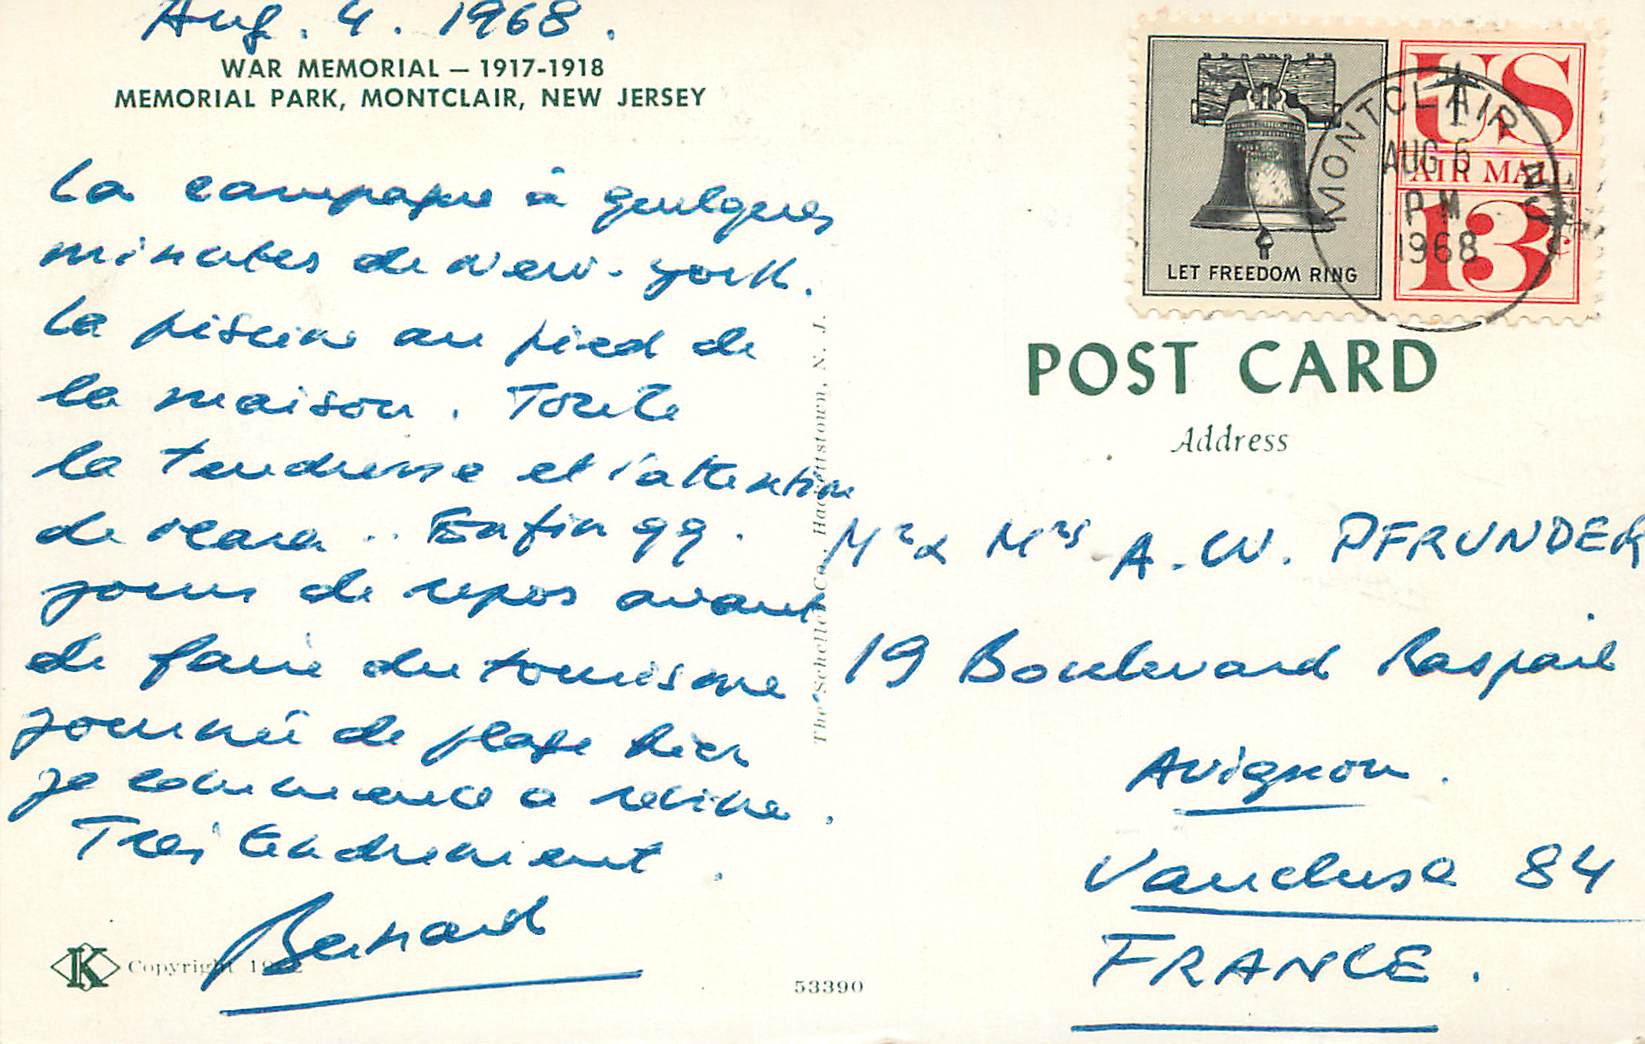 Aug. 4. 1968.
WAR MEMORIAL — 1917-1918
MEMORIAL PARK, MONTCLAIR, NEW JERSEY
La campagne à quelques
minutes de New-York.
La piscine au pied de
la maison. Toute
la tendresse et l'attention
de Clara .. Enfin qq.
jours de repos avant
de faire du tourisme.
journée de plage hier
je commence a revivre.
Très tendrement.
Bernard
K Copyright
53390
The Scheller Co., Hackettstown, N. J.
LET FREEDOM RING
US
AIR MAIL
13c
MONTCLAIR N.J.
AUG 6
PM
1968
POST CARD
Address
Mr & Mrs A.W. PFRUNDER
19 Boulevard Raspail
Avignon.
Vaucluse 84
FRANCE.